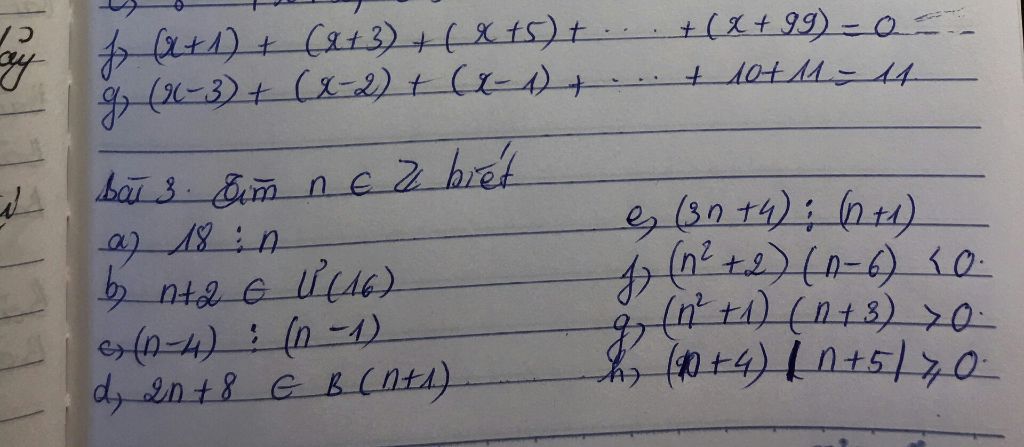 f, (x+1) + (x+3) + (x+5) + ..... + (x+99) = 0
g, (x-3) + (x-2) + (x-1) + ..... + 10+11 = 11
bài 3. Tìm n ∈ Z biết
a) 18 ⋮ n
b) n+2 ∈ Ư(16)
c, (n-4) ⋮ (n-1)
d, 2n+8 ∈ B(n+1)
e, (3n+4) ⋮ (n+1)
f, (n²+2)(n-6) < 0.
g, (n²+1)(n+3) > 0.
h, (n+4)|n+5| ⩾ 0.